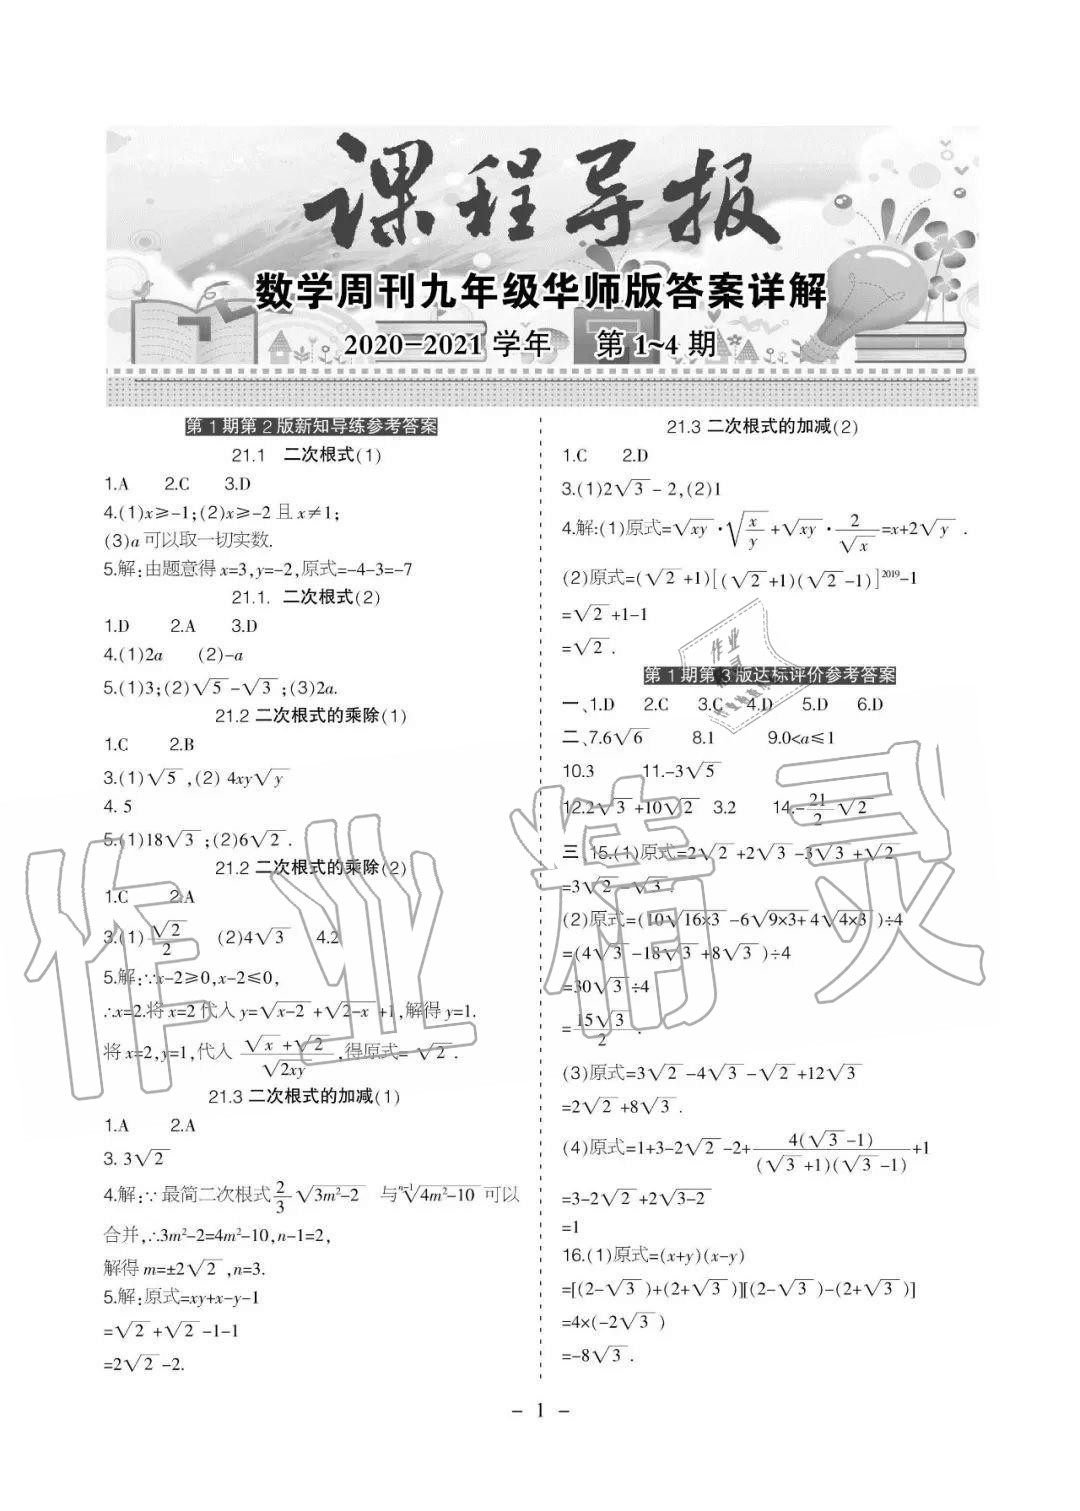 课程导报
数学周刊九年级华师版答案详解
2020-2021 学年 第 1~4 期
第 1 期第 2 版新知导练参考答案
21.1 二次根式(1)
1.A 2.C 3.D
4.(1)x≥-1;(2)x≥-2 且 x≠1;
(3)a 可以取一切实数.
5.解:由题意得 x=3,y=-2,原式=-4-3=-7
21.1. 二次根式(2)
1.D 2.A 3.D
4.(1)2a (2)-a
5.(1)3;(2)√5-√3;(3)2a.
21.2 二次根式的乘除(1)
1.C 2.B
3.(1)√5,(2) 4xy√y
4. 5
5.(1)18√3;(2)6√2.
21.2 二次根式的乘除(2)
1.C 2.A
3.(1)√2/2 (2)4√3 4.2
5.解:∵x-2≥0,x-2≤0,
∴x=2.将 x=2 代入 y=√(x-2)+√(2-x)+1,解得 y=1.
将 x=2,y=1,代入 (√x+√2)/√(2xy),得原式=√2.
21.3 二次根式的加减(1)
1.A 2.A
3. 3√2
4.解:∵最简二次根式 2/3√(3m²-2) 与 ⁿ⁻¹√(4m²-10) 可以
合并,∴3m²-2=4m²-10,n-1=2,
解得 m=±2√2,n=3.
5.解:原式=xy+x-y-1
=√2+√2-1-1
=2√2-2.
21.3 二次根式的加减(2)
1.C 2.D
3.(1)2√3-2,(2)1
4.解:(1)原式=√(xy)·√(x/y)+√(xy)·2/√x=x+2√y.
(2)原式=(√2+1)[(√2+1)(√2-1)]²⁰¹⁹-1
=√2+1-1
=√2.
第 1 期第 3 版达标评价参考答案
一、1.D 2.C 3.C 4.D 5.D 6.D
二、7.6√6 8.1 9.0<a≤1
10.3 11.-3√5
12.2√3+10√2 3.2 14.-21/2√2
三 15.(1)原式=2√2+2√3-3√3+√2
=3√2-√3.
(2)原式=(10√(16×3)-6√(9×3)+4√(4×3))÷4
=(4√3-18√3+8√3)÷4
=30√3÷4
=15√3/2.
(3)原式=3√2-4√3-√2+12√3
=2√2+8√3.
(4)原式=1+3-2√2-2+4(√3-1)/((√3+1)(√3-1))+1
=3-2√2+2√(3-2)
=1
16.(1)原式=(x+y)(x-y)
=[(2-√3)+(2+√3)][(2-√3)-(2+√3)]
=4×(-2√3)
=-8√3.
- 1 -
作业精灵